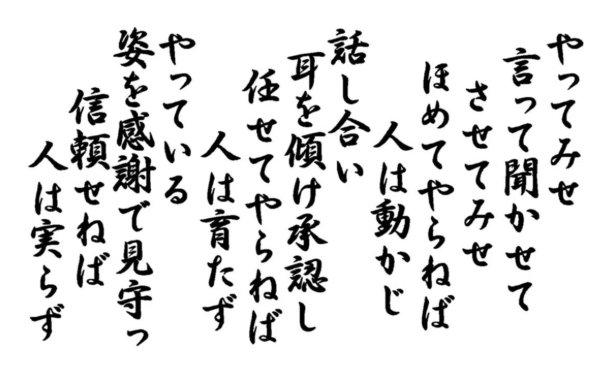 やってみせ
言って聞かせて
させてみせ
ほめてやらねば
人は動かじ
話し合い
耳を傾け承認し
任せてやらねば
人は育たず
やっている
姿を感謝で見守っ
信頼せねば
人は実らず